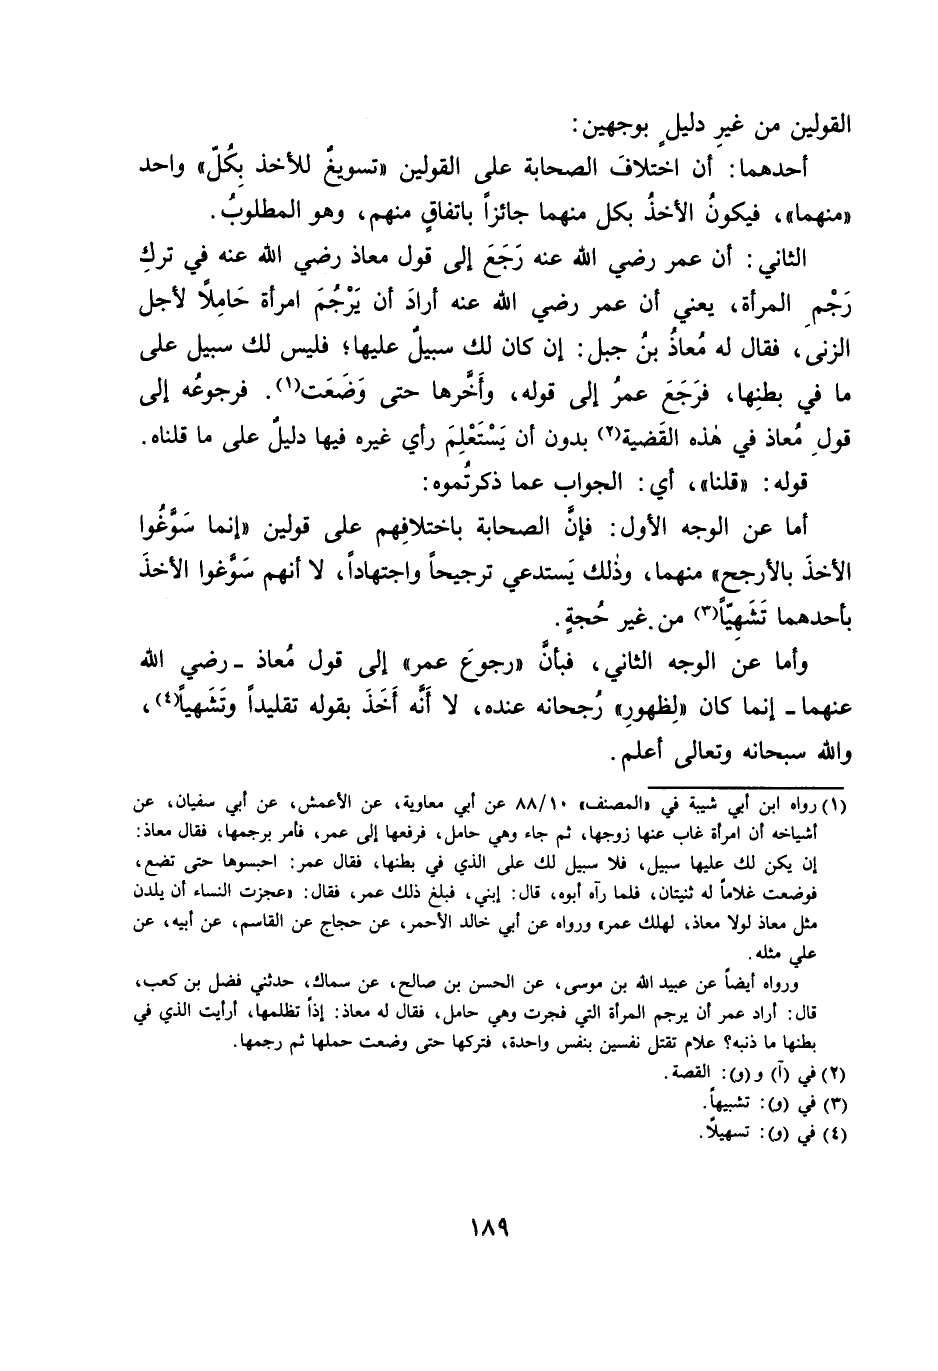 القولين من غيرِ دليلٍ بوجهين:
أحدهما: أن اختلافَ الصحابة على القولين «تسويغٌ للأخذ بِكُلّ» واحد
«منهما»، فيكونُ الأخذُ بكل منهما جائزاً باتفاقٍ منهم، وهو المطلوبُ.
الثاني: أن عمر رضي الله عنه رَجَعَ إلى قول معاذ رضي الله عنه في تركِ
رَجْمِ المرأة، يعني أن عمر رضي الله عنه أرادَ أن يَرْجُمَ امرأة حَامِلًا لأجل
الزنى، فقال له مُعاذُ بنُ جبل: إن كان لك سبيلٌ عليها؛ فليس لك سبيل على
ما في بطنِها، فرَجَعَ عمرُ إلى قوله، وأَخَّرها حتى وَضَعَت(١). فرجوعُه إلى
قولِ مُعاذ في هٰذه القَضية(٢) بدون أن يَسْتَعْلِمَ رأي غيره فيها دليلٌ على ما قلناه.
قوله: «قلنا»، أي: الجواب عما ذكرتُموه:
أما عن الوجه الأول: فإنَّ الصحابة باختلافِهم على قولين «إنما سَوَّغُوا
الأخذَ بالأرجح» منهما، وذٰلك يَستدعي ترجيحاً واجتهاداً، لا أنهم سَوَّغوا الأخذَ
بأحدهما تَشَهِيّاً(٣) من غير حُجةٍ.
وأما عن الوجه الثاني، فبأنَّ «رجوعَ عمر» إلى قول مُعاذ - رضي الله
عنهما - إنما كان «لِظهورِ» رُجحانه عنده، لا أَنَّه أَخَذَ بقوله تقليداً وتَشَهياً(٤)،
والله سبحانه وتعالى أعلم.
(١) رواه ابن أبي شيبة في «المصنف» ٨٨/١٠ عن أبي معاوية، عن الأعمش، عن أبي سفيان، عن
أشياخه أن امرأة غاب عنها زوجها، ثم جاء وهي حامل، فرفعها إلى عمر، فأمر برجمها، فقال معاذ:
إن يكن لك عليها سبيل، فلا سبيل لك على الذي في بطنها، فقال عمر: احبسوها حتى تضع،
فوضعت غلاماً له ثنيتان، فلما رآه أبوه، قال: إبني، فبلغ ذلك عمر، فقال: «عجزت النساء أن يلدن
مثل معاذ لولا معاذ، لهلك عمر» ورواه عن أبي خالد الأحمر، عن حجاج عن القاسم، عن أبيه، عن
علي مثله.
ورواه أيضاً عن عبيد الله بن موسى، عن الحسن بن صالح، عن سماك، حدثني فضل بن كعب،
قال: أراد عمر أن يرجم المرأة التي فجرت وهي حامل، فقال له معاذ: إذاً تظلمها، أرأيت الذي في
بطنها ما ذنبه؟ علام تقتل نفسين بنفس واحدة، فتركها حتى وضعت حملها ثم رجمها.
(٢) في (آ) و(و): القصة.
(٣) في (و): تشبيهاً.
(٤) في (و): تسهيلًا.
١٨٩